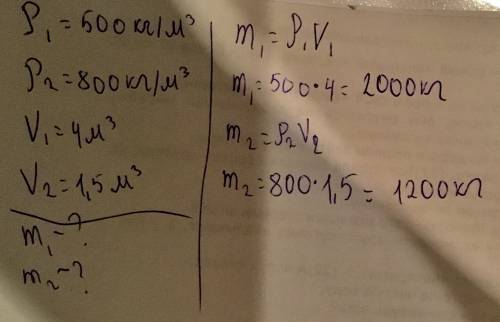 ρ₁ = 500 кг/м³
ρ₂ = 800 кг/м³
V₁ = 4 м³
V₂ = 1,5 м³
m₁ - ?
m₂ - ?
m₁ = ρ₁V₁
m₁ = 500 · 4 = 2000 кг
m₂ = ρ₂V₂
m₂ = 800 · 1,5 = 1200 кг